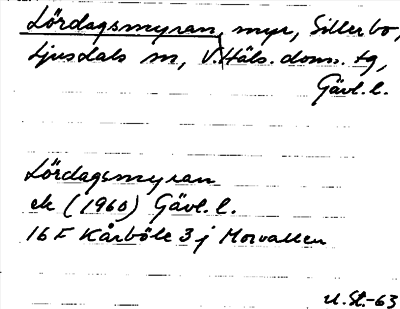 Lördagsmyran, myr, Sillerbo,
Ljusdals sn, V. Häls. doms. tg,
Gävl. l.
Lördagsmyran
ek (1960) Gävl. l.
16 F Kårböle 3 j Morvallen
U. St.-63